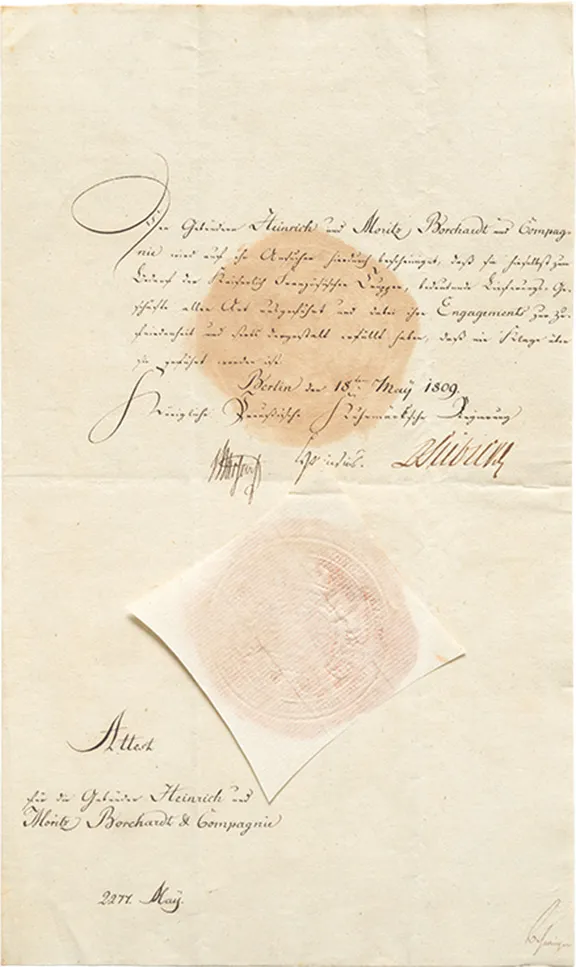 Den Gebrüdern Heinrich und Moritz Borchardt und Compag-
nie wird auf ihr Ansuchen hierdurch bescheiniget, daß sie hieselbst zum
Bedarf der Kaiserlich Französischen Truppen, bedeutende Lieferungs-Ge-
schäfte aller Art ausgeführt und dabei ihre Engagements zur Zu-
friedenheit und stets dergestalt erfüllt haben, daß nie Klage über
sie geführt worden ist.
Berlin den 18ten May 1809.
Königliche Preußische Kuhrmärksche Regierung
Attest
für die Gebrüder Heinrich und
Moritz Borchardt & Compagnie
2277. May.